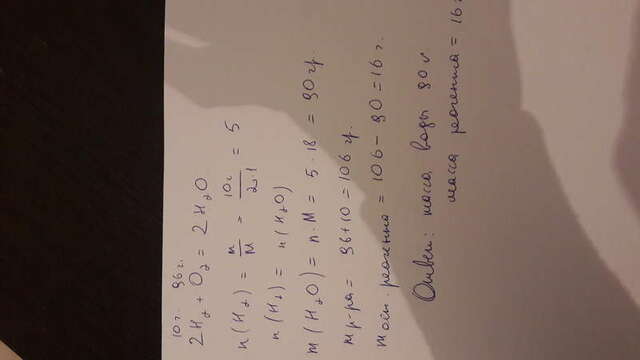 10 г. 96 г.
2H₂ + O₂ = 2H₂O
n(H₂) = m/M = 10г/2·1 = 5
n(H₂) = n(H₂O)
m(H₂O) = n·M = 5·18 = 90 гр.
m р-ра = 96+10 = 106 гр.
m ост. реагента = 106 - 90 = 16 г.
Ответ: масса воды 90 г
масса реагента = 16 г